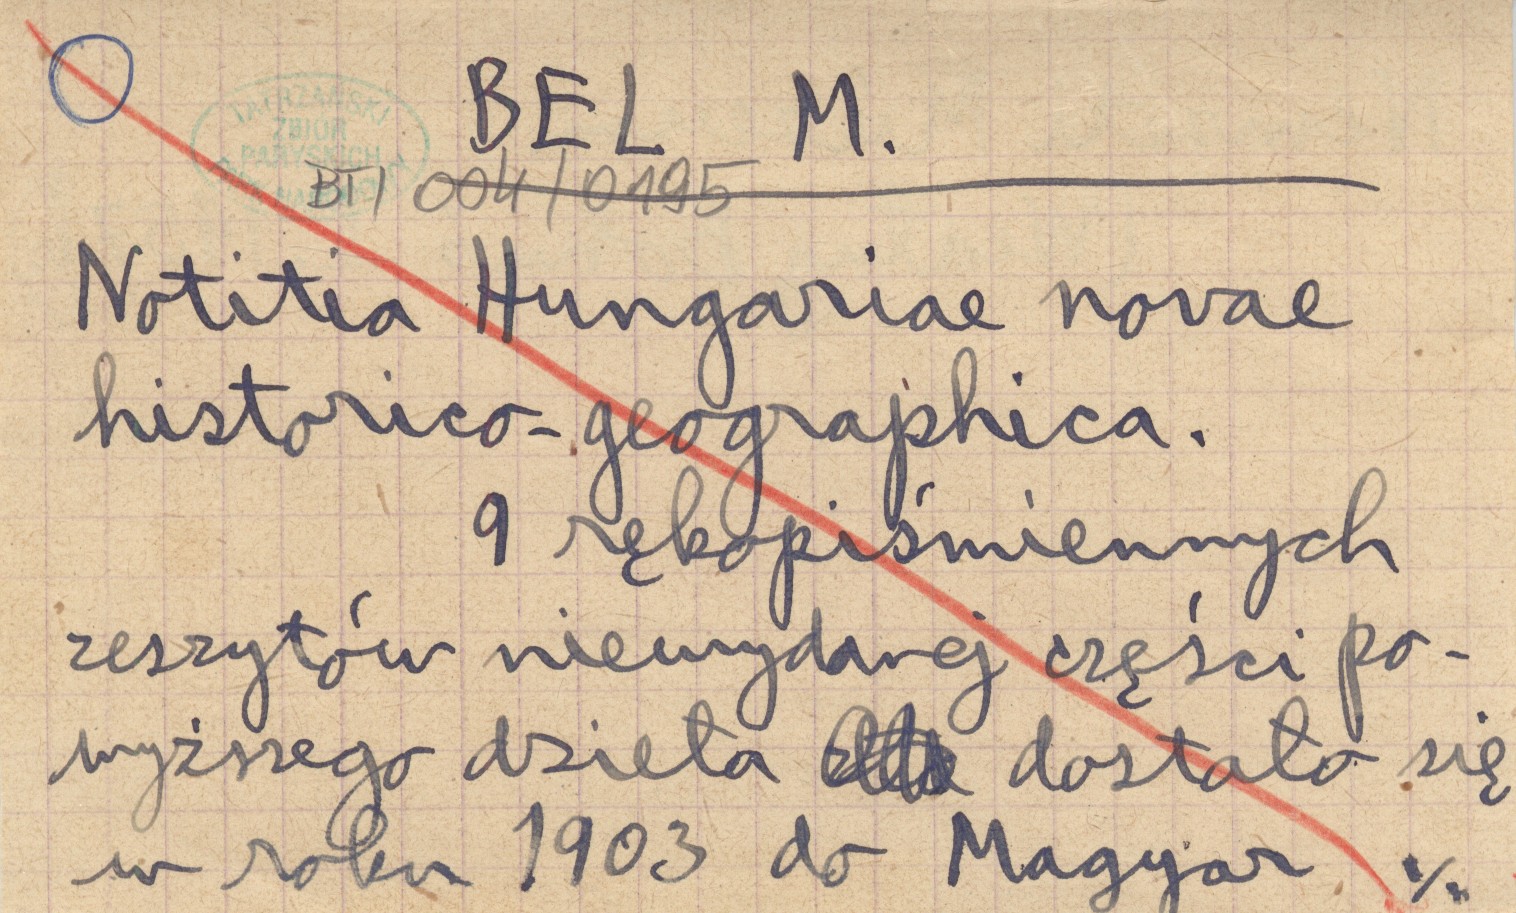 BEL M.
TATRZAŃSKI
ZBIÓR
PARYSKICH
BT/ 004/0195
Notitia Hungariae novae
historico-geographica.
9 rękopiśmiennych
zeszytów niewydanej części po-
wyższego dzieła dostało się
w roku 1903 do Magyar ./.